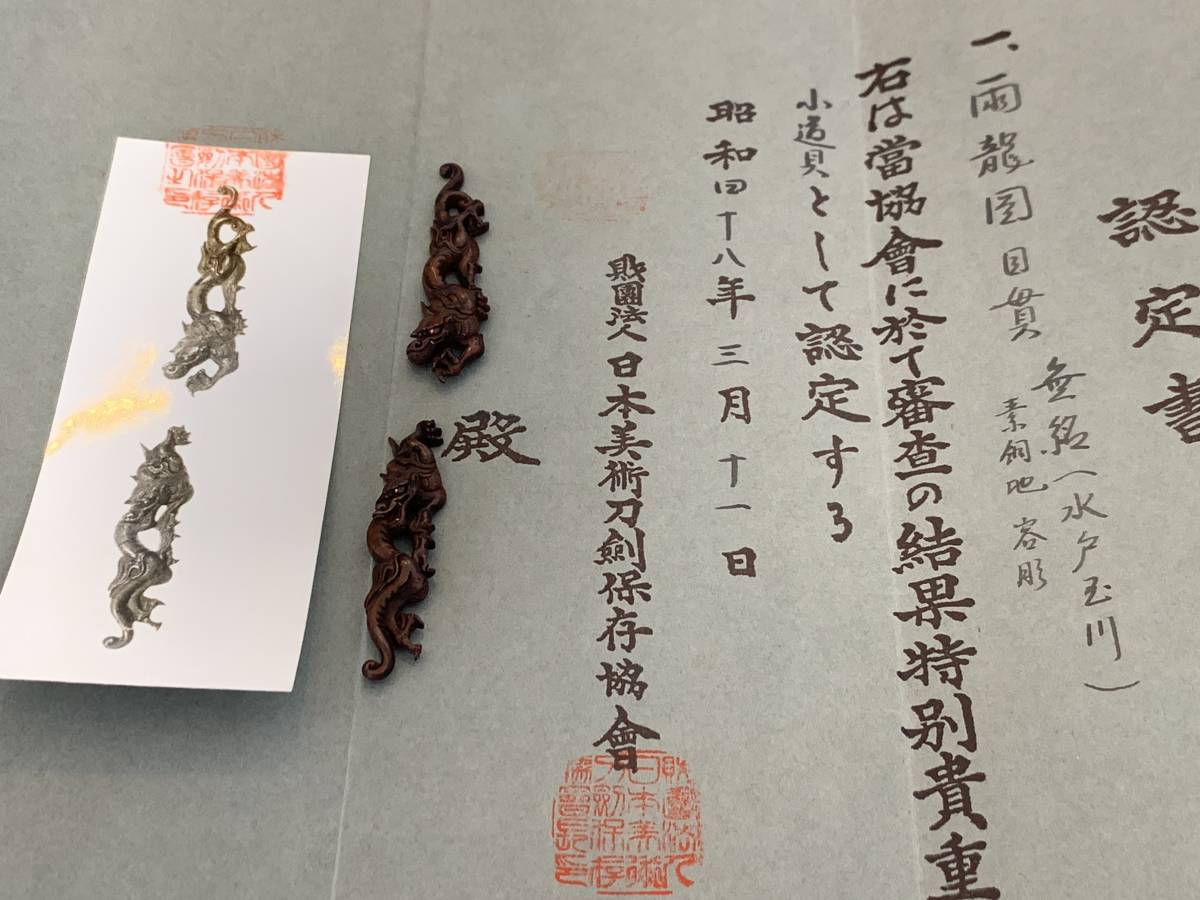 認定書
一、雨龍図目貫 無銘（水戸玉川）
素銅地 容彫
右は當協會に於て審査の結果特別貴重
小道具として認定する
昭和四十八年三月十一日
財團法人日本美術刀劍保存協會
殿